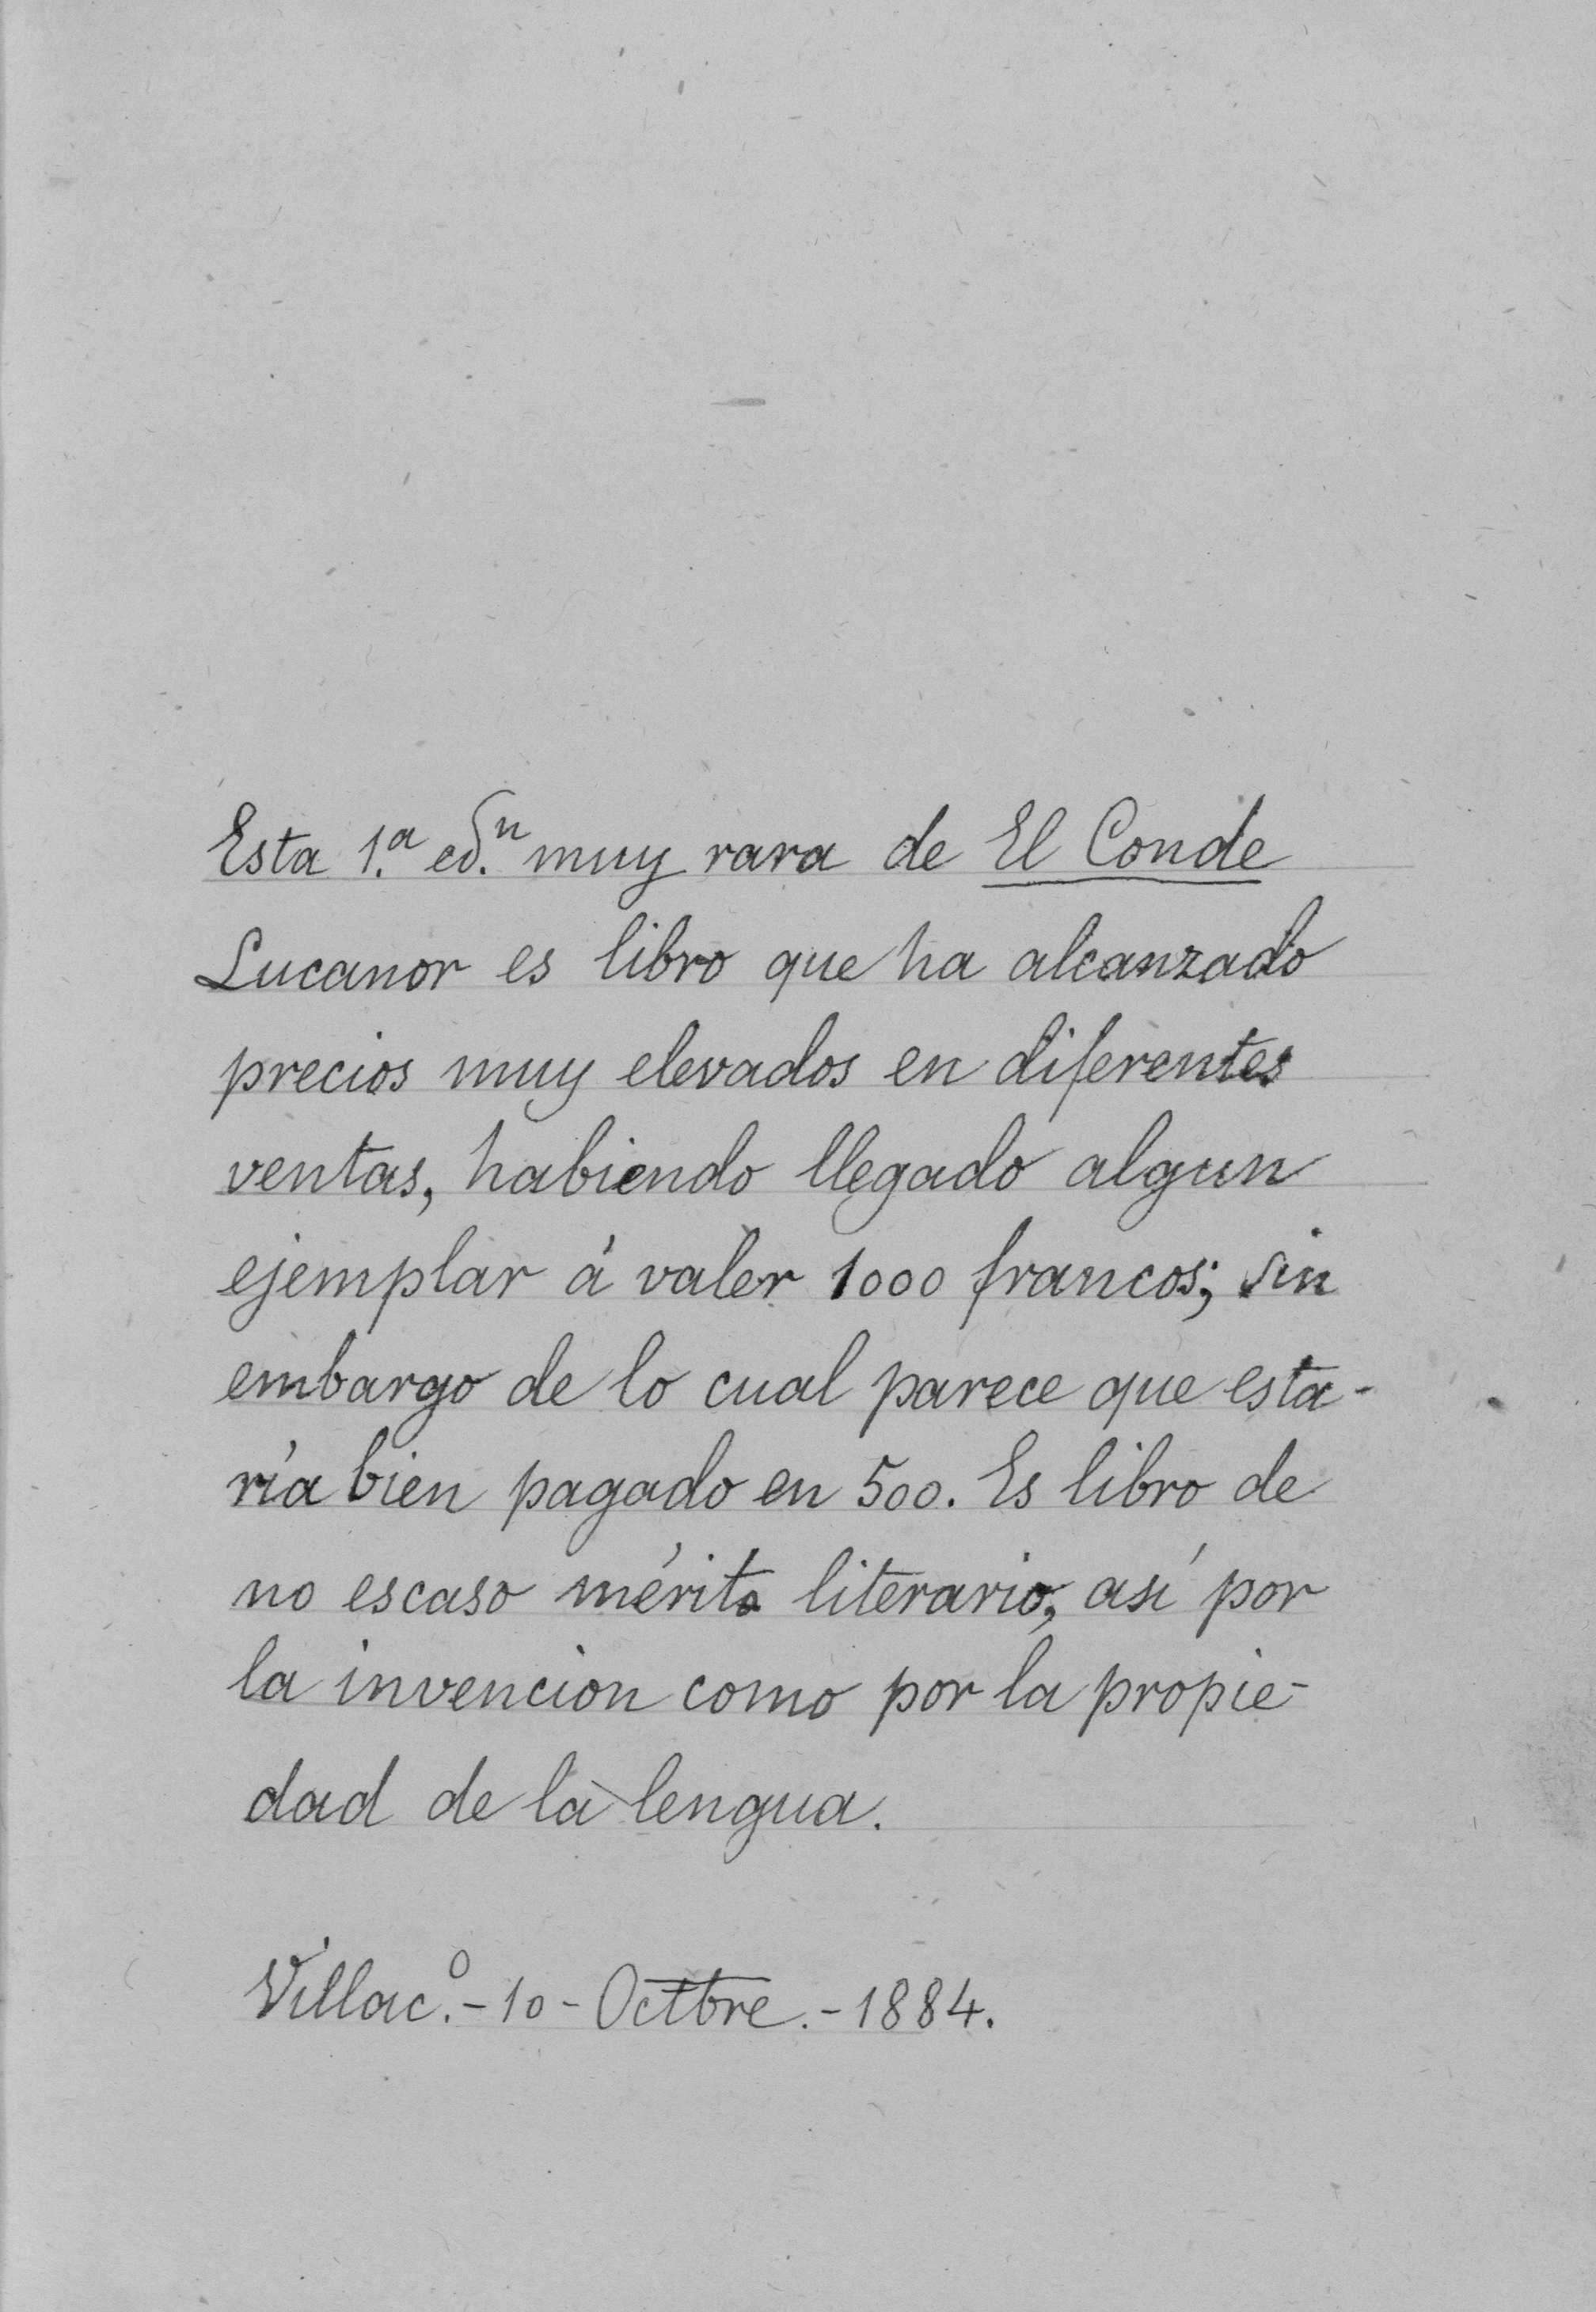 Esta 1.ª ed.ⁿ muy rara de El Conde
Lucanor es libro que ha alcanzado
precios muy elevados en diferentes
ventas, habiendo llegado algun
ejemplar á valer 1000 francos; sin
embargo de lo cual parece que esta-
ría bien pagado en 500. Es libro de
no escaso mérito literario, así por
la invencion como por la propie-
dad de la lengua.
Villac.º - 10 - Octtbre. - 1884.